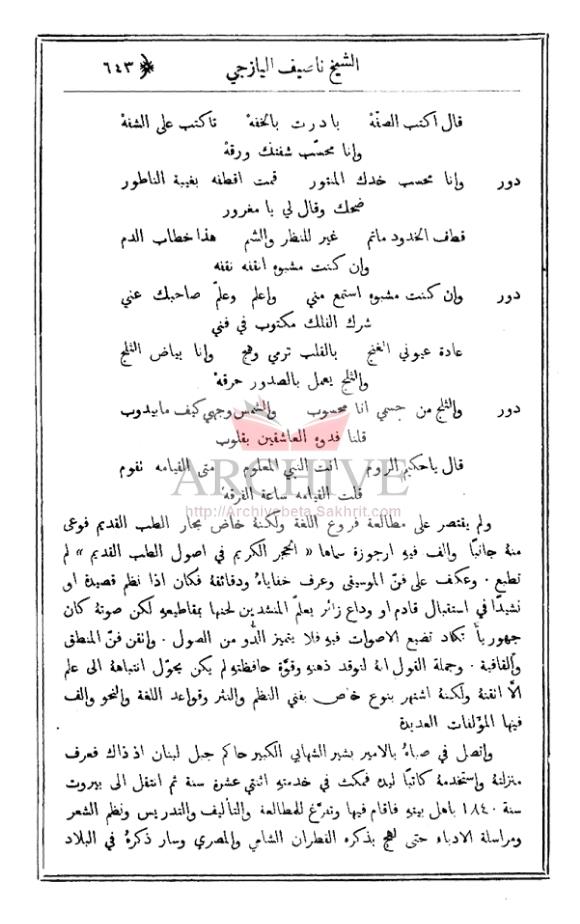 الشيخ ناصيف اليازجي ٦٤٣
قال اكتب الصفّه بادرت بالخفه تاكتب على الشفه
وانا محسّب شفتك ورقه
دور وانا محسب خدك المنثور قمت اقطفه بغيبة الناطور
ضحك وقال لي يا مغرور
قطاف الخدود ماتم غير للنظر والشم هذا خطاب الدم
وان كنت مشبوه انقه نقه
دور وان كنت مشبوه استمع مني واعلم وعلّم صاحبك عني
شرك الفلك مكتوب في فني
عادة عيوني الغنج بالقلب ترمي وهج وانا بياض الثلج
والثلج يعمل بالصدور حرقه
دور والثلج من جسمي انا محسوب والشمس وجهي كيف ما بيدوب
قلنا فدوه العاشقين بقلوب
قال ياحكيم الروم انت النبي المعلوم متى القيامه نقوم
قلت القيامه ساعة الفرقه
ARCHIVE
http://Archivebeta.Sakhrit.com
ولم يقتصر على مطالعة فروع اللغة ولكنهُ خاض بحار الطب القديم فوعى
منهُ جانبًا والف فيهِ ارجوزة سماها « الحجر الكريم في اصول الطب القديم » لم
تطبع . وعكف على فنّ الموسيقى وعرف خفاياهُ ودقائقهُ فكان اذا نظم قصيدة او
نشيدًا في استقبال قادم او وداع زائر يعلّم المنشدين لحنها بمقاطيعهِ لكن صوتهُ كان
جهوريًّا تكاد تضيع الاصوات فيهِ فلا يتميز الدُّو من الصول . واتقن فنّ المنطق
والقافية . وجملة القول انهُ لتوقد ذهنهِ وقوّة حافظتهِ لم يكن يحوّل انتباههُ الى علم
الّا اتقنهُ ولكنهُ اشتهر بنوع خاص بفني النظم والنثر وقواعد اللغة والنحو والف
فيها المؤلفات العديدة
واتصل في صباهُ بالامير بشير الشهابي الكبير حاكم جبل لبنان اذ ذاك فعرف
منزلتهُ واستخدمهُ كاتبًا لهُ فمكث في خدمتهِ اثنتي عشرة سنة ثم انتقل الى بيروت
سنة ١٨٤٠ باهل بيتهِ فاقام فيها وتفرّغ للمطالعة والتأليف والتدريس ونظم الشعر
ومراسلة الادباء حتى لهج بذكره القطران الشامي والمصري وسار ذكرهُ في البلاد